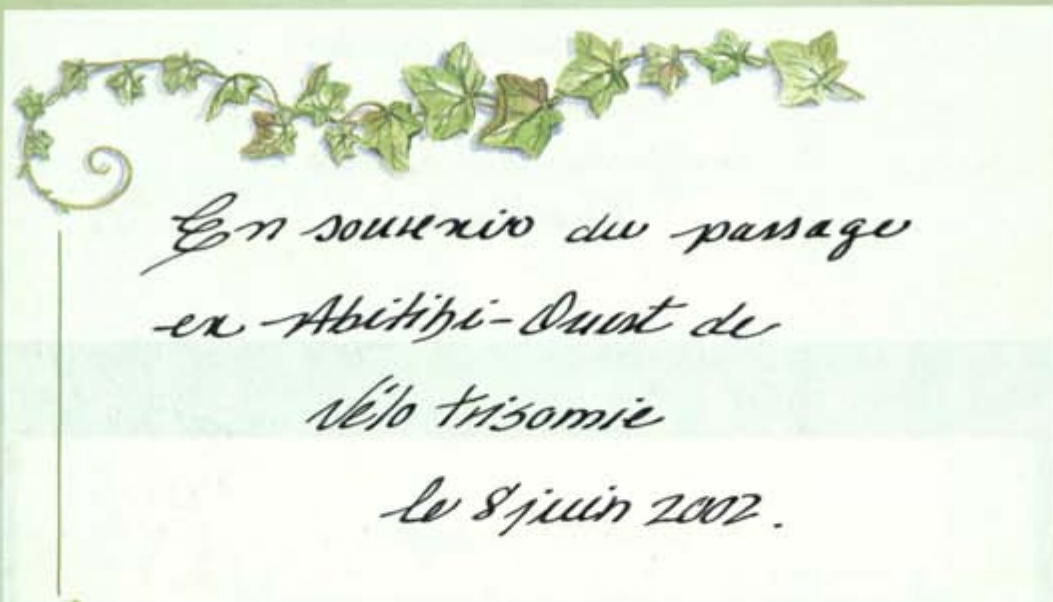 En souvenir du passage
en Abitibi-Ouest de
Vélo trisomie
le 8 juin 2002.